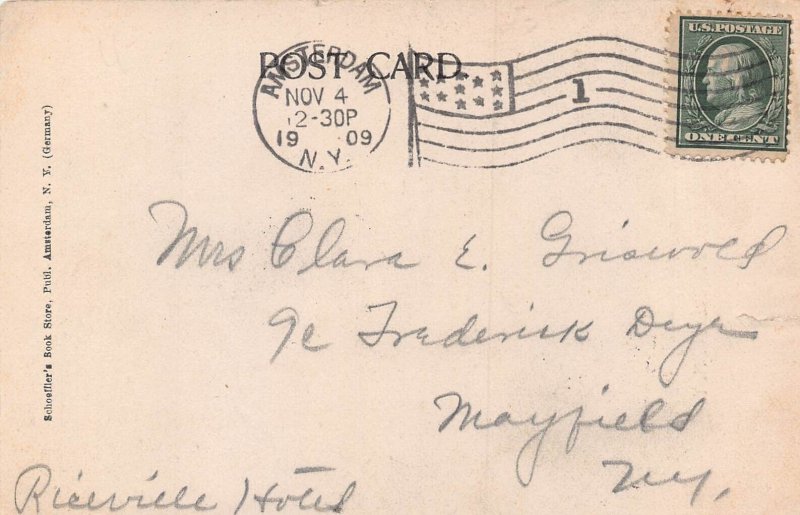 POST CARD.
AMSTERDAM
NOV 4
12-30P
19 09
N.Y.
1
U.S. POSTAGE
ONE CENT
Schoeffler's Book Store, Publ. Amsterdam, N. Y. (Germany)
Mrs Clara E. Griswold
℅ Frederick Deye
Mayfield
N.Y.
Riceville Hotel